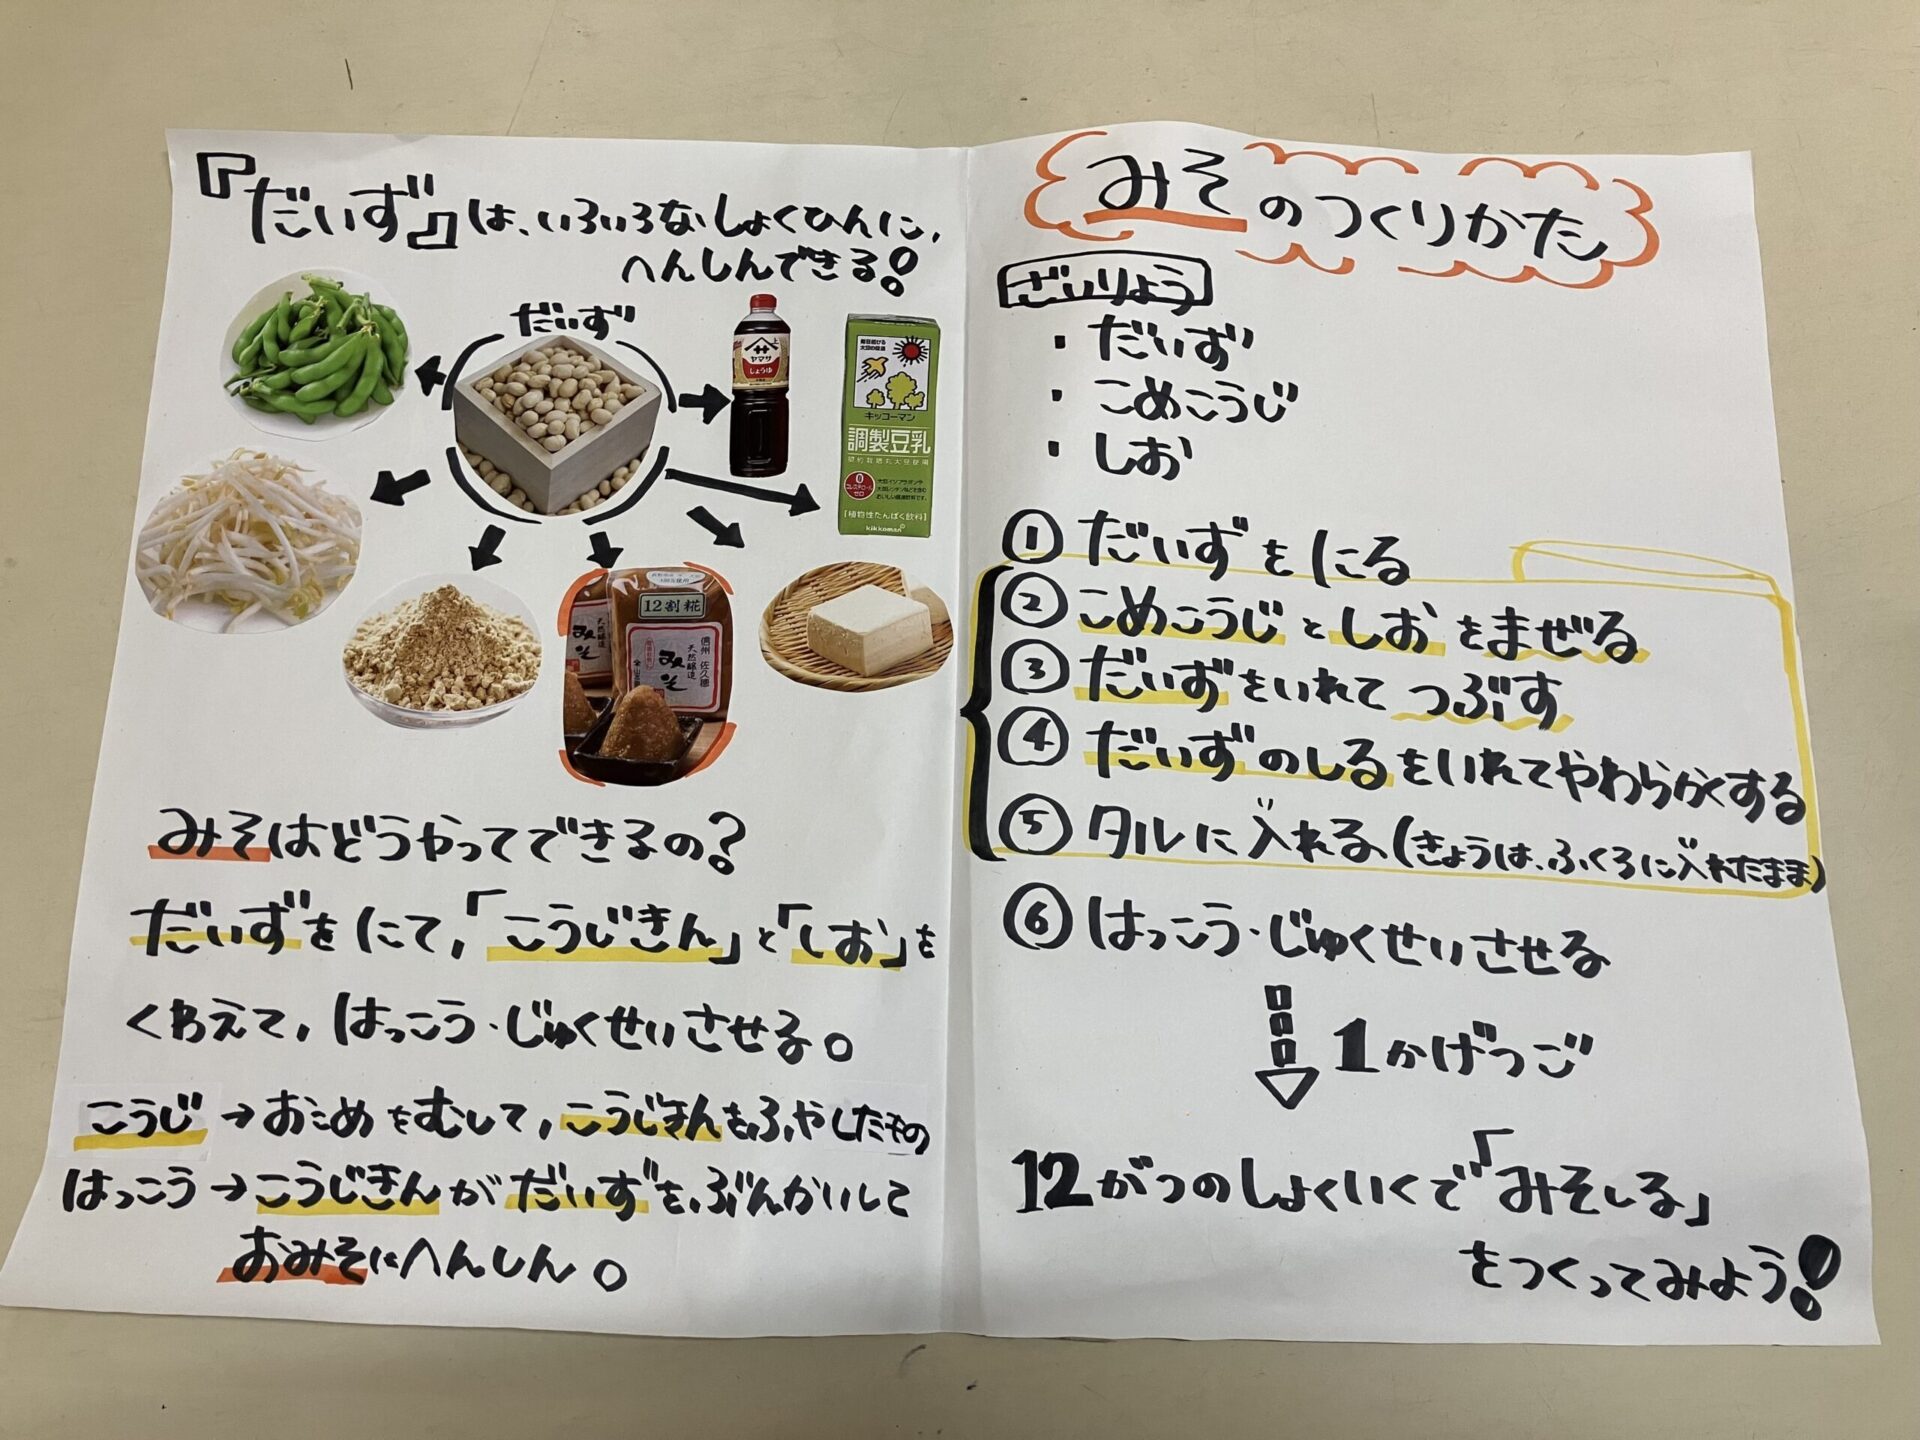 『だいず』は、いろいろなしょくひんに、
へんしんできる!
だいず
ヤマサ
しょうゆ
キッコーマン
調製豆乳
0
コレステロール
ゼロ
[植物性たんぱく飲料]
kikkoman
12割糀
信州 佐久穂
天然醸造
みそ
みそはどうやってできるの?
だいずをにて,「こうじきん」と「しお」を
くわえて,はっこう・じゅくせいさせる。
こうじ→おこめをむして,こうじきんをふやしたもの
はっこう→こうじきんがだいずをぶんかいして
おみそにへんしん。
みそのつくりかた
ざいりょう
・だいず
・こめこうじ
・しお
①だいずをにる
②こめこうじとしおをまぜる
③だいずをいれてつぶす
④だいずのしるをいれてやわらかくする
⑤タルに入れる(きょうは、ふくろに入れたまま)
⑥はっこう・じゅくせいさせる
1かげつご
12がつのしょくいくで「みそしる」
をつくってみよう!